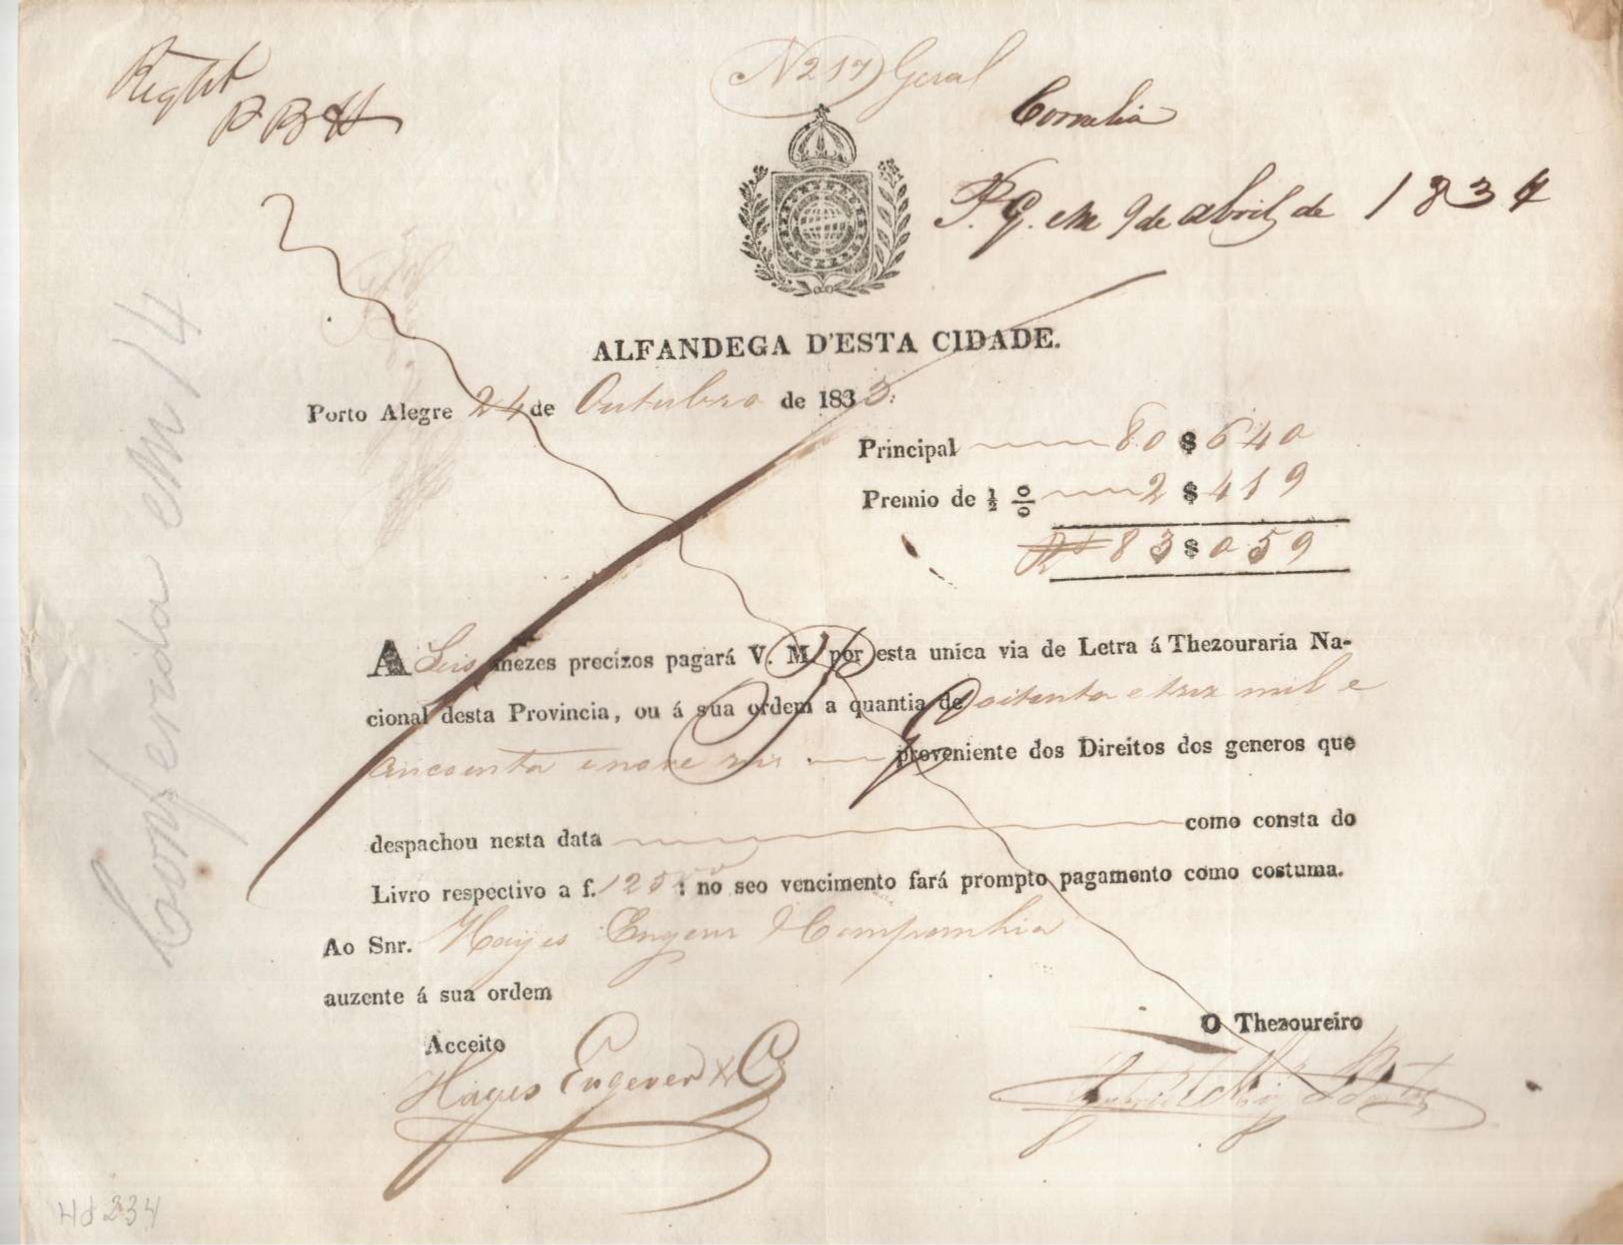 N 217 Geral
Right
B B H
Cornelia
P. G. em 9 de abril de 1834
ALFANDEGA D'ESTA CIDADE.
Porto Alegre 24 de Outubro de 1833.
Principal 80 $ 640
Premio de ½ 0/0 2 $ 419
Rs 83 $ 059
A Seis mezes precizos pagará V. M. por esta unica via de Letra á Thezouraria Na-
cional desta Provincia, ou á sua ordem a quantia de oitenta e trez mil e
cincoenta e nove reis proveniente dos Direitos dos generos que
despachou nesta data como consta do
Livro respectivo a f. 125 : no seo vencimento fará prompto pagamento como costuma.
Ao Snr. Hayes Engerer & Companhia
auzente á sua ordem
O Thezoureiro
Acceito
Hayes Engerer & C
Conferida em 14